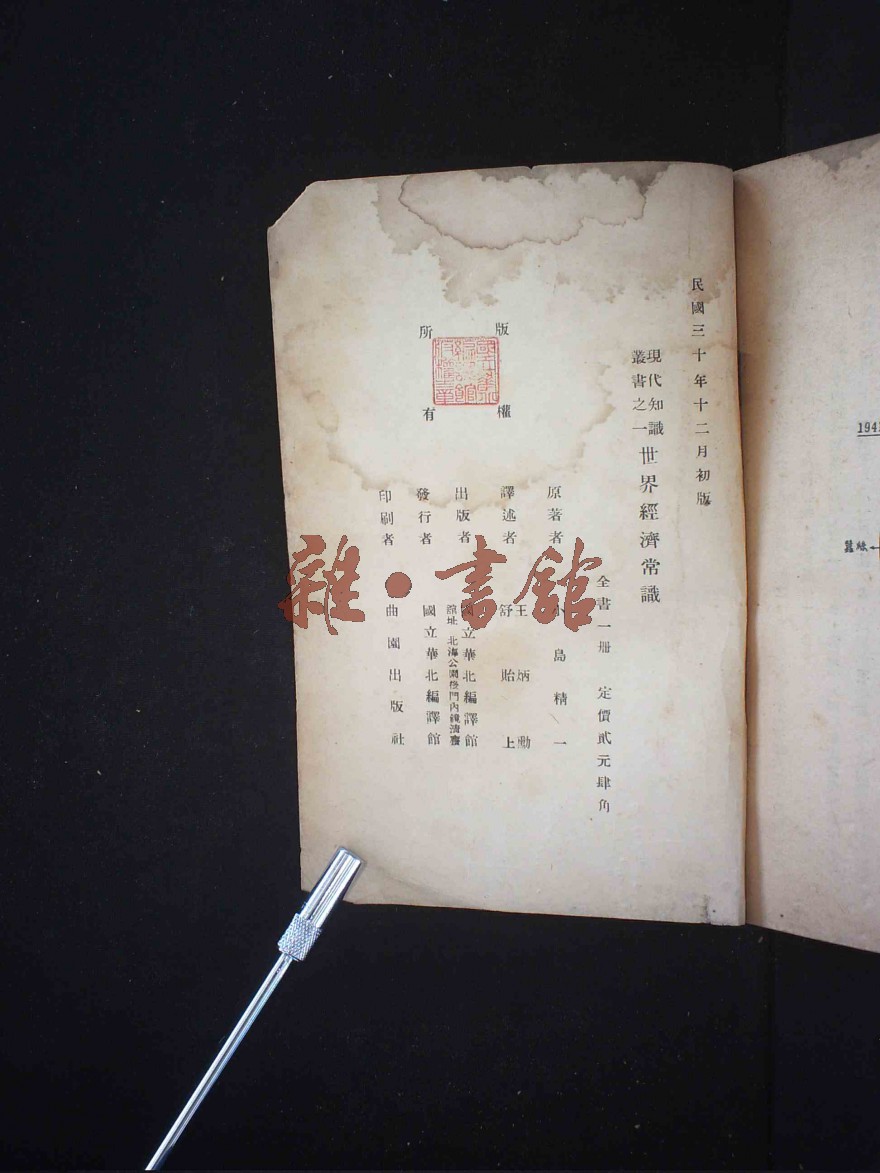 民國三十年十二月初版
現代知識
叢書之一
世界經濟常識
全書一册 定價貳元肆角
原著者 小島精一
譯述者 王炳勳
舒貽上
出版者 國立華北編譯館
館址 北海公園後門內鏡清齋
發行者 國立華北編譯館
印刷者 曲園出版社
版權
所有
雜·書館
1941